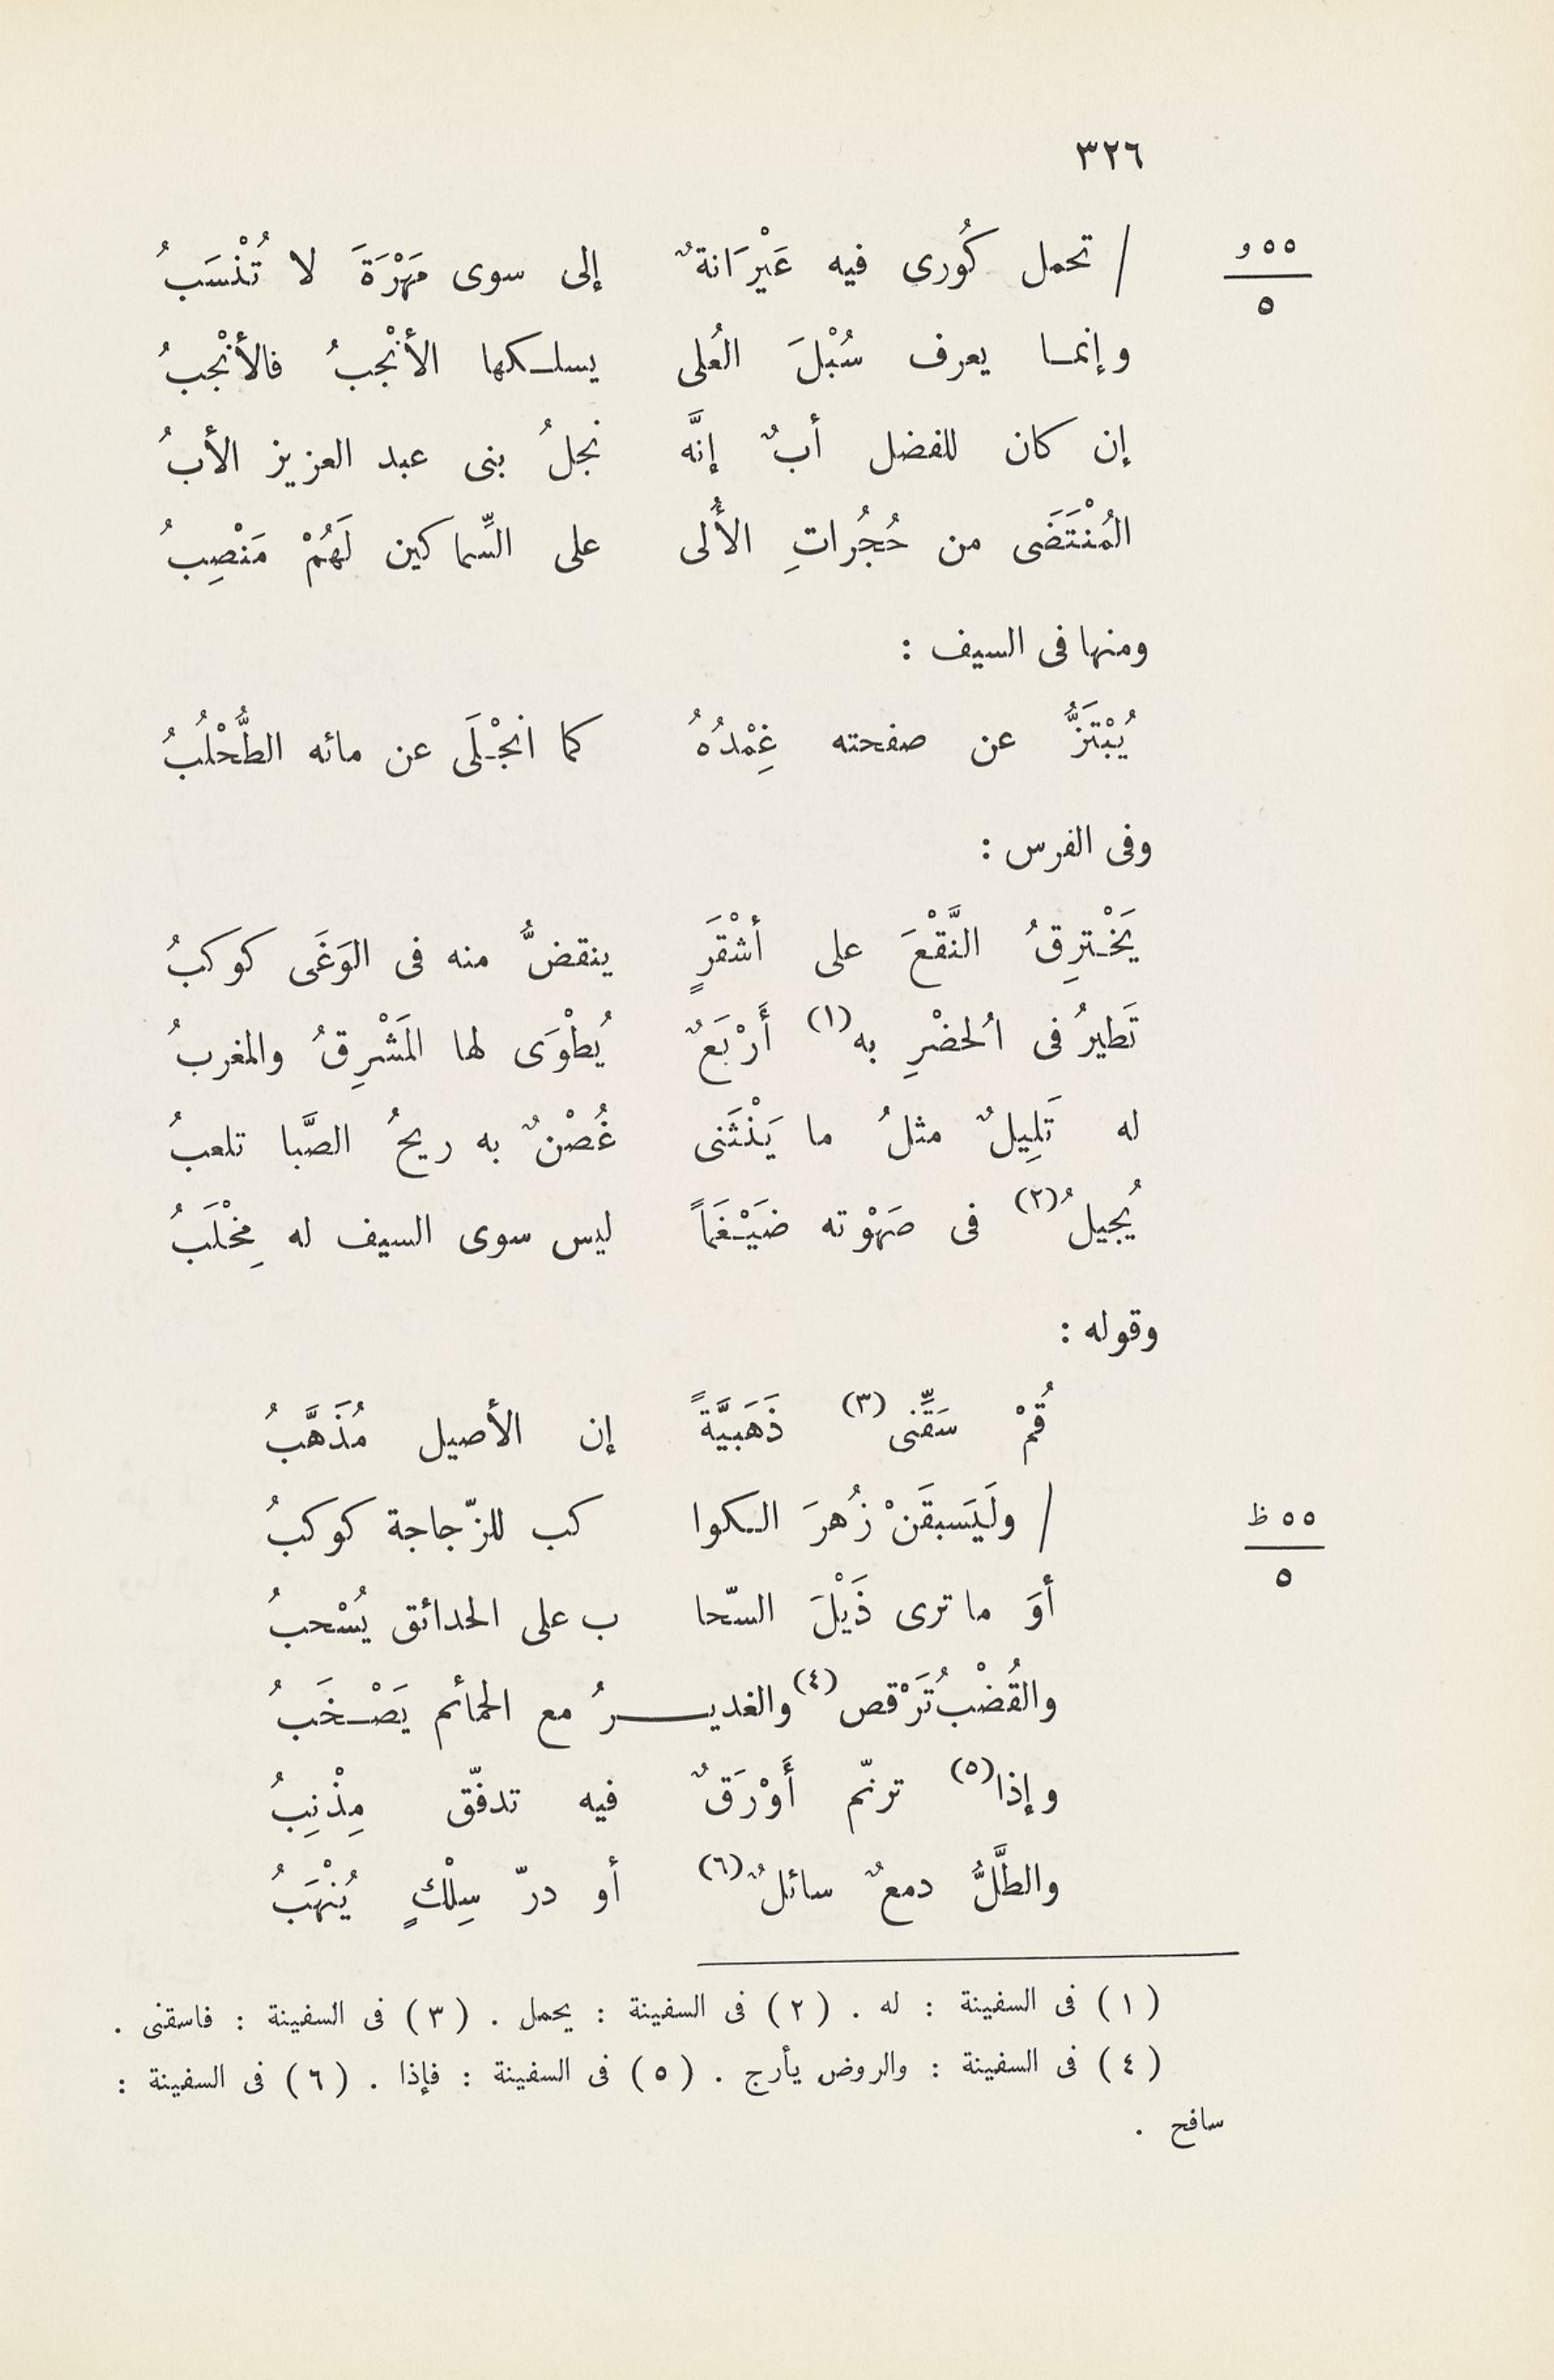 ٣٢٦
٥٥ و
٥
/ تحمل كُورى فيه عَيْرَانةٌ إلى سوى مَهْرَةَ لا تُنْسَبُ
وإنما يعرف سُبْلَ العُلى يسلكها الأنْجبُ فالأنْجبُ
إن كان للفضل أبٌ إنَّه نجلُ بنى عبد العزيز الأبُ
المُنْتَضَى من حُجُراتِ الأُلى على السِّماكين لَهُمْ مَنْصِبُ
ومنها فى السيف :
يُبْتَزُّ عن صفحته غِمْدُهُ كما انجْلَى عن مائه الطُّحْلُبُ
وفى الفرس :
يَخْترِقُ النَّقْعَ على أشْقَرٍ ينقضُّ منه فى الوَغَى كوكبُ
تَطيرُ فى الُحضْرِ به(١) أَرْبَعٌ يُطْوَى لها المَشْرِقُ والمغربُ
له تَلِيلٌ مثلُ ما يَنْثَنى غُصْنٌ به ريحُ الصَّبا تلعبُ
يُجيلُ(٢) فى صَهْوته ضَيْغَماً ليس سوى السيف له مِخْلَبُ
وقوله :
قُمْ سَقِّنى(٣) ذَهَبيَّةً إن الأصيل مُذَهَّبُ
٥٥ ظ
٥
/ ولَيَسبقَنْ زُهرَ الكوا كب للزّجاجة كوكبُ
أوَ ما ترى ذَيْلَ السّحا ب على الحدائق يُسْحبُ
والقُضْبُ تَرْقص(٤) والغديرُ مع الحمائم يَصْخَبُ
وإذا(٥) ترنّم أَوْرَقٌ فيه تدفّق مِذْنِبُ
والطَّلُّ دمعٌ سائلٌ(٦) أو درّ سِلْكٍ يُنْهَبُ
(١) فى السفينة : له . (٢) فى السفينة : يحمل . (٣) فى السفينة : فاسقنى .
(٤) فى السفينة : والروض يأرج . (٥) فى السفينة : فإذا . (٦) فى السفينة :
سافح .